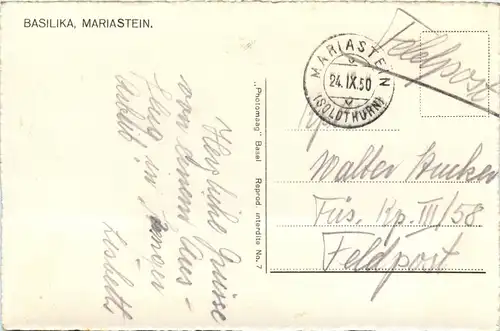 BASILIKA, MARIASTEIN.
Feldpost
MARIASTEIN
24.IX.50
(SOLOTHURN)
Herzliche Grüsse
von einem Aus-
flug in
Lisbeth
„Photomaag“ Basel Reprod. interdite No. 7
Walter
Füs. Kp. III/58
Feldpost